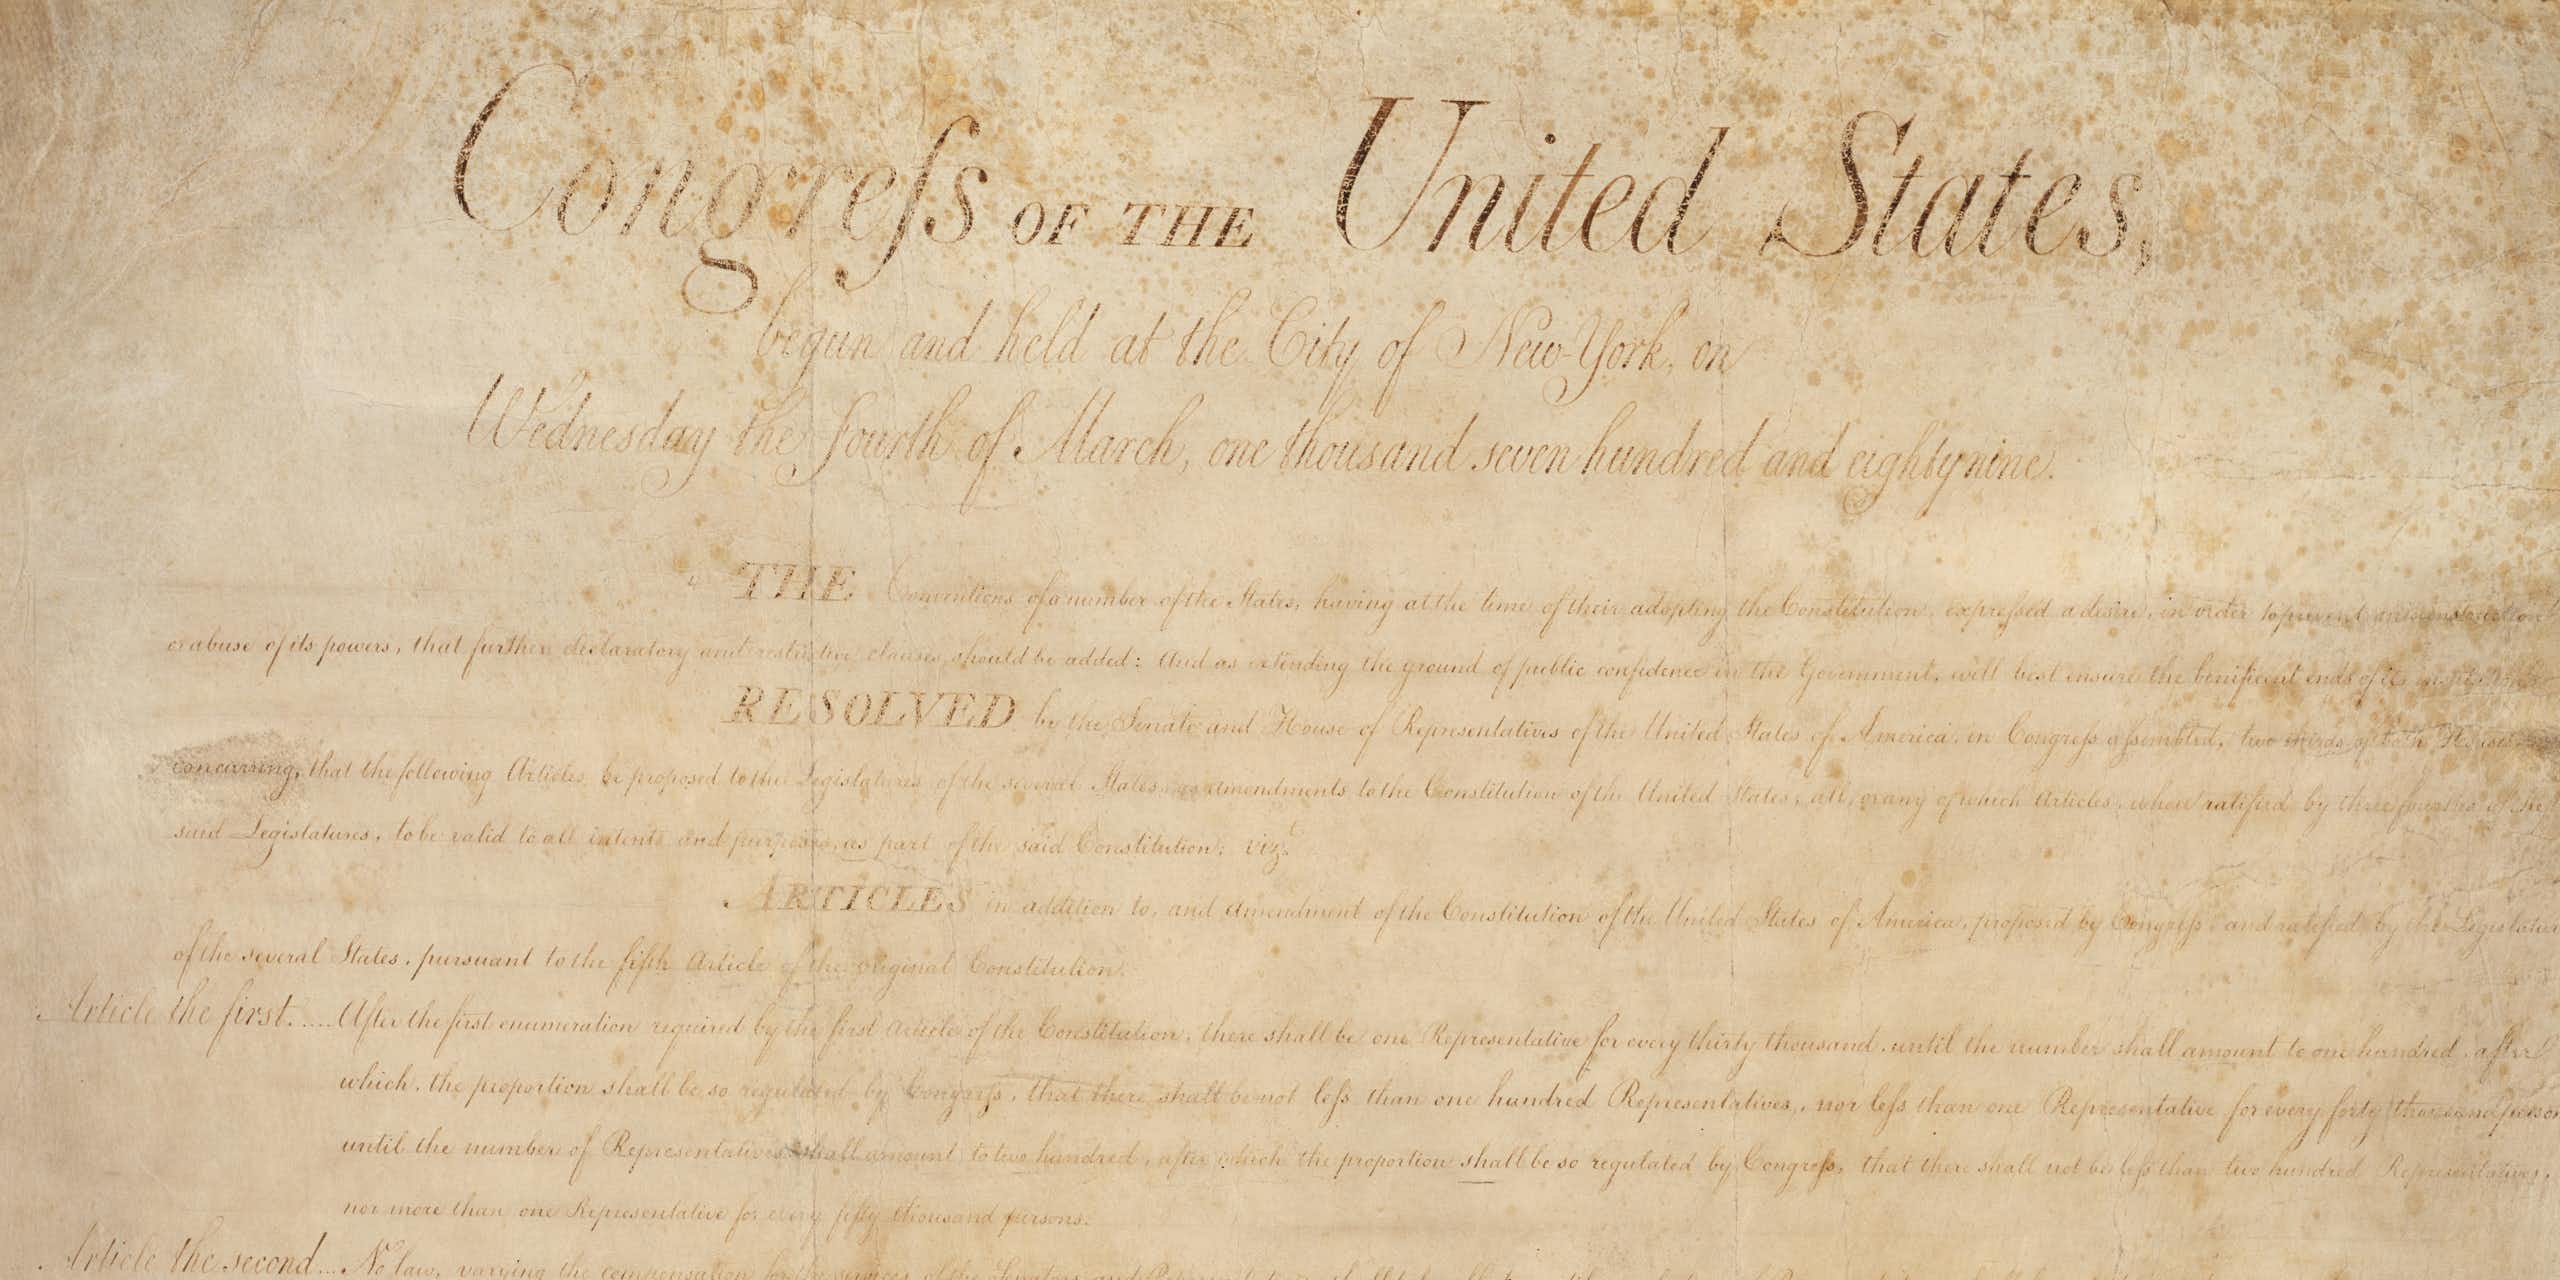 Congreſs OF THE United States,
begun and held at the City of New-York, on
Wednesday the fourth of March, one thousand seven hundred and eighty nine.
THE Conventions of a number of the States, having at the time of their adopting the Constitution, expreſsed a desire, in order to prevent misconstruction
or abuse of its powers, that further declaratory and restrictive clauses should be added: And as extending the ground of public confidence in the Government, will best ensure the benificent ends of its
RESOLVED by the Senate and House of Representatives of the United States of America, in Congreſs aſsembled, two thirds of both Houses
concurring, that the following Articles be proposed to the Legislatures of the several States, as amendments to the Constitution of the United States, all, or any of which Articles, when ratified by three fourths of the
said Legislatures, to be valid to all intents and purposes, as part of the said Constitution; vizt.
ARTICLES in addition to, and Amendment of the Constitution of the United States of America, proposed by Congreſs, and ratified by the Legislatur
of the several States, pursuant to the fifth Article of the original Constitution.
Article the first..... After the first enumeration required by the first Article of the Constitution, there shall be one Representative for every thirty thousand, until the number shall amount to one hundred, after
which, the proportion shall be so regulated by Congreſs, that there shall be not leſs than one hundred Representatives, nor leſs than one Representative for every forty thousand person
until the number of Representatives shall amount to two hundred, after which the proportion shall be so regulated by Congreſs, that there shall not be leſs than two hundred Representatives,
nor more than one Representative for every fifty thousand persons.
Article the second... No law, varying the compensation for the services of the Senators and